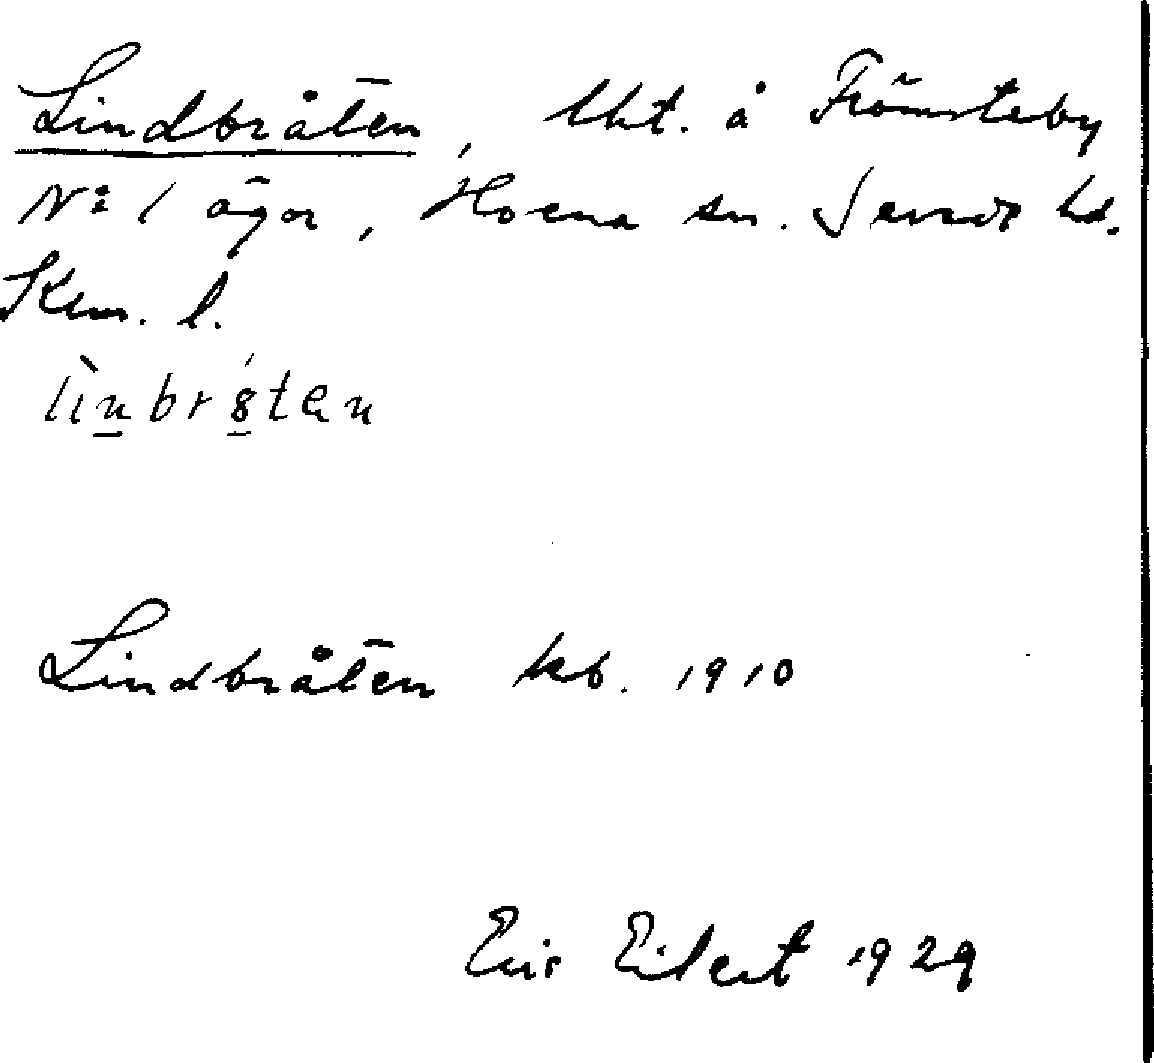 Lindbråten, lht. å Frömsteby
No 1 ägor, Hoena sn. Sevede hd.
Klm. l.
lìnbr8́tən
Lindbråten kb. 1910
Eilert 1929